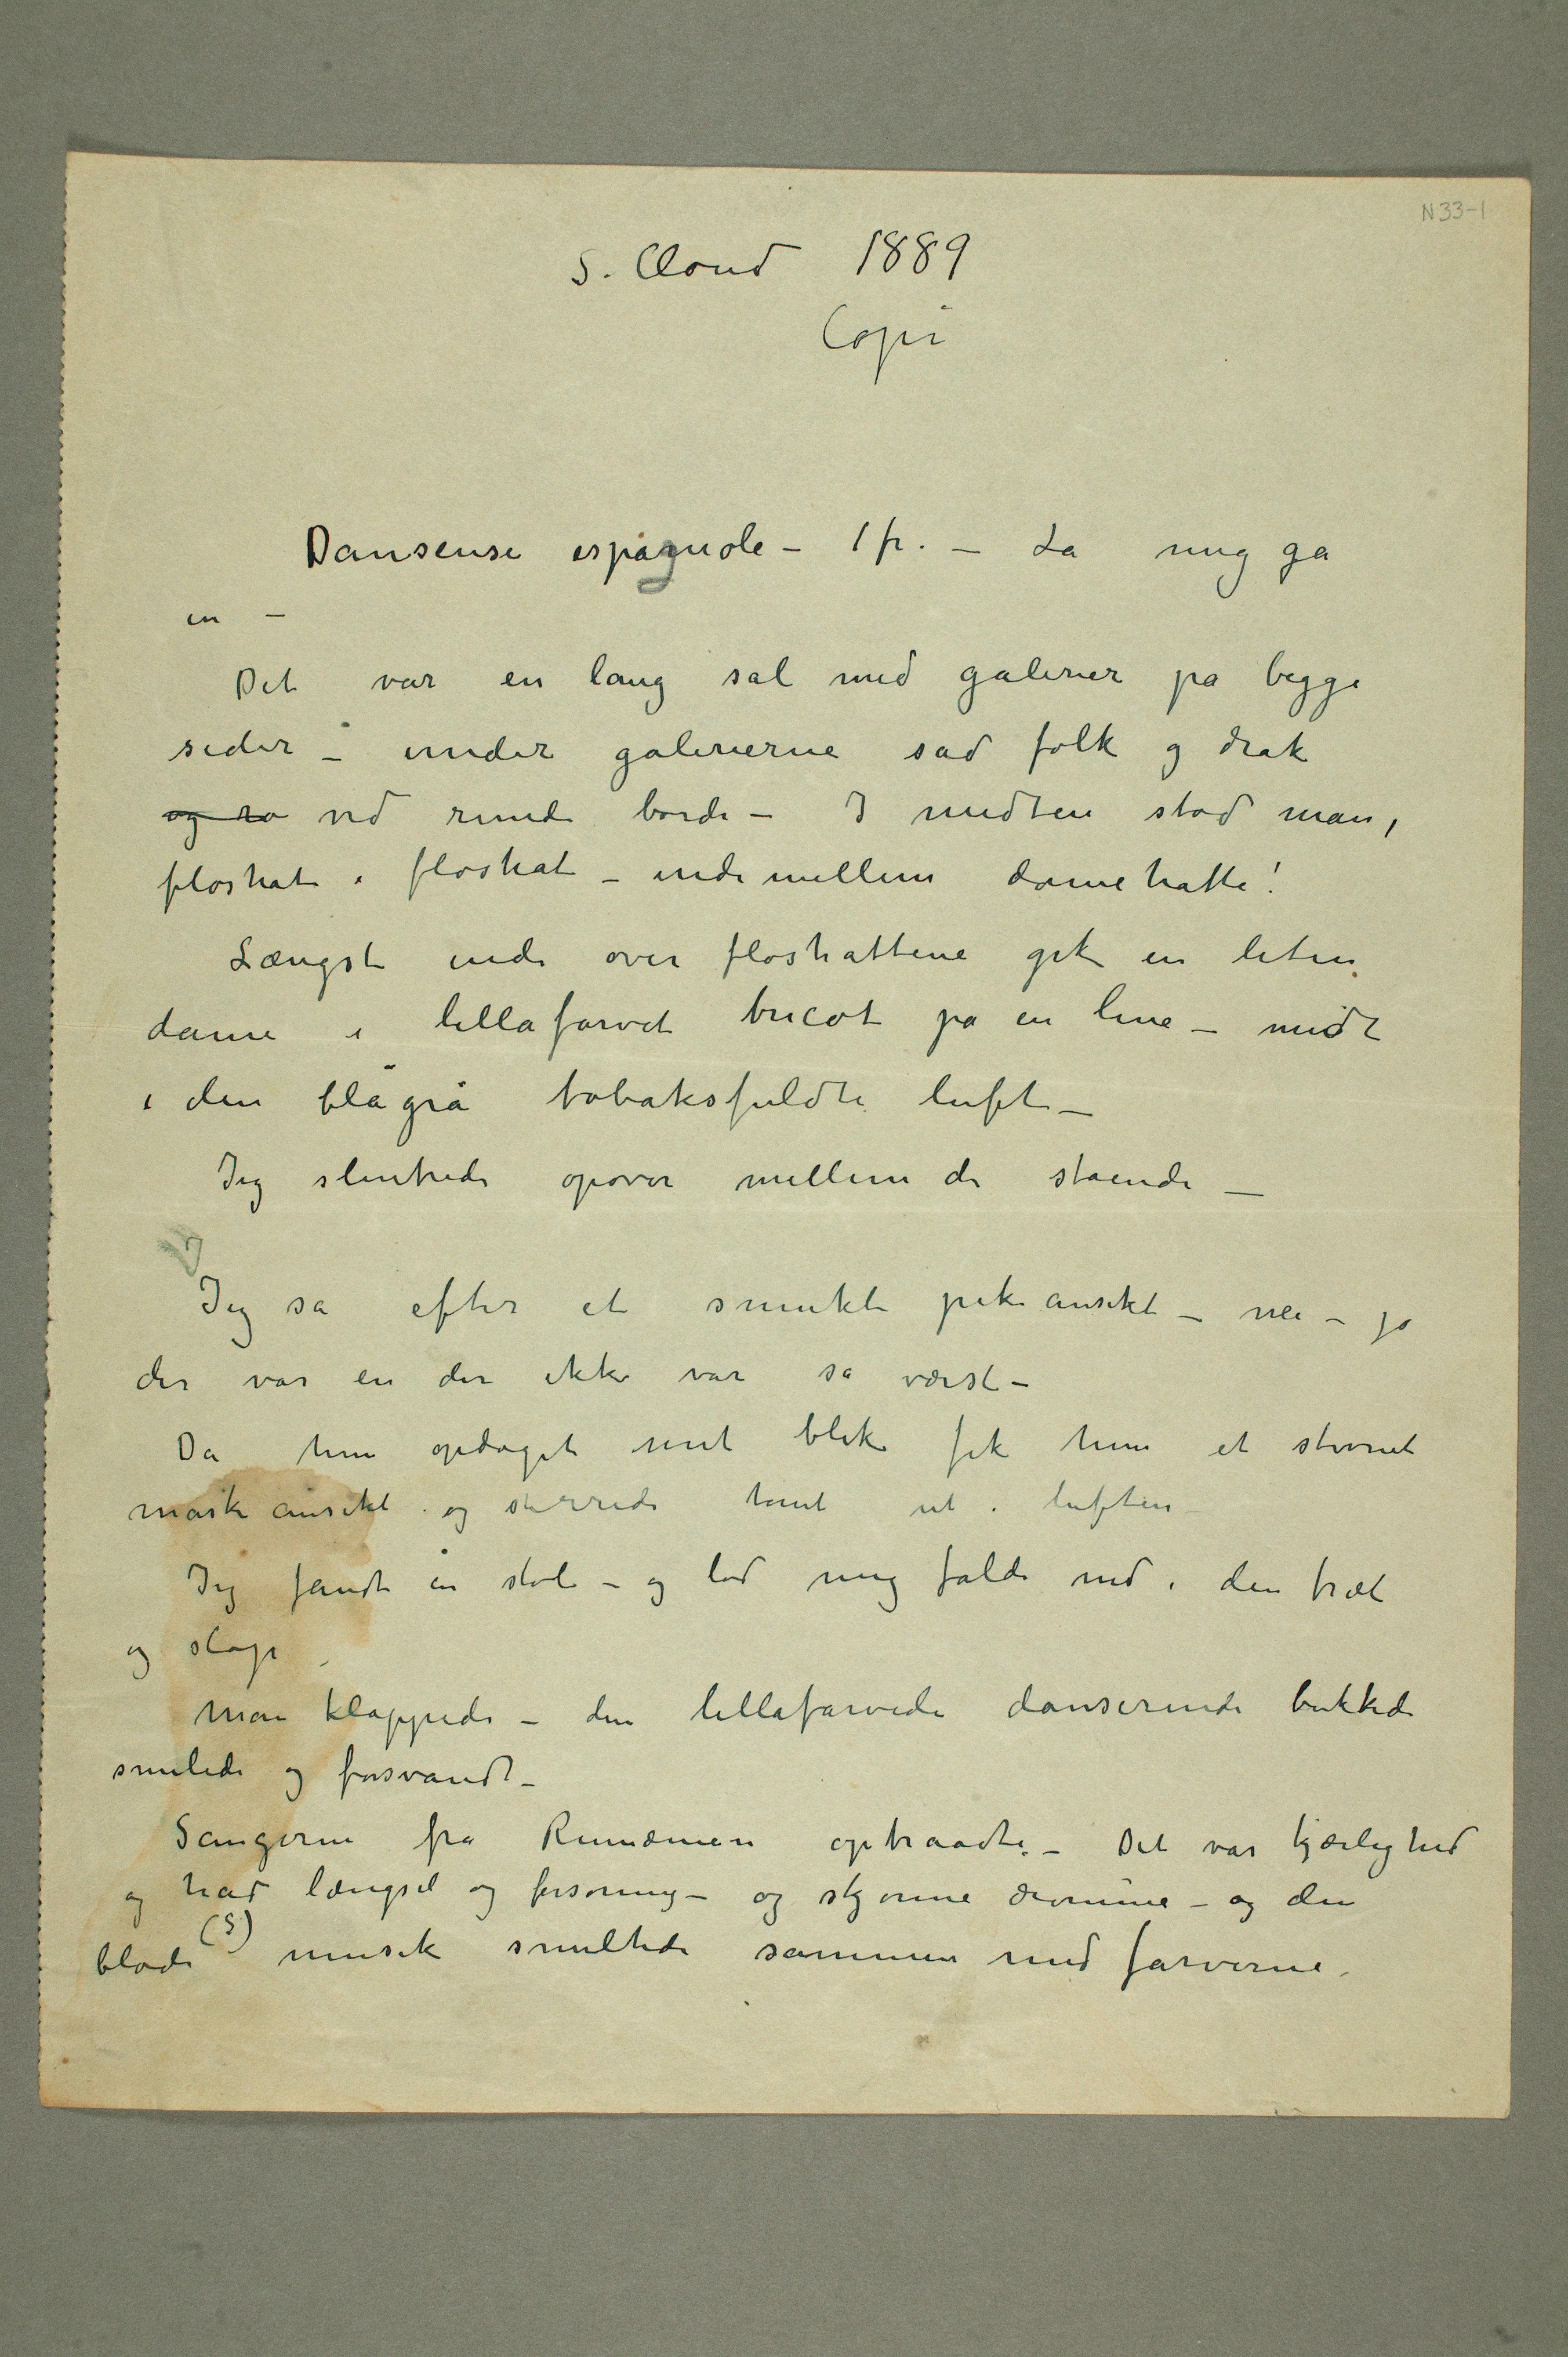 N33-1
S. Cloud 1889
Copi
Danseuse espagnole – 1 fr. – La mig gå
in –
Det var en lang sal med galerier på begge
sider – under galerierne sad folk og drak
og ro ved runde borde – I midten stod man,
floshat i floshat – inde mellem damehatte!
Længst inde over floshattene gik en liten
dame i lillafarvet tricot på en line – midt
i den blågrå tobaksfuldte luft –
Jeg slentrede opover mellem de stående –
Jeg så efter et smukt pikeansikt – nei – jo
der var en der ikke var så værst –
Da hun opdaget mit blik fik hun et stivnet
maskeansikt og stirrede tomt ut i luften
Jeg fandt en stol – og lod mig falde ned i den træt
og slap
Man klappede – den lillafarvede danserinde bukked
smilede og forsvandt –
Sangerne fra Rumænien optraadte. – Det var kjærlighed
og had længsel og forsoning – og skjønne drømme – og den
bløde (S) musik smeltede sammen med farverne.